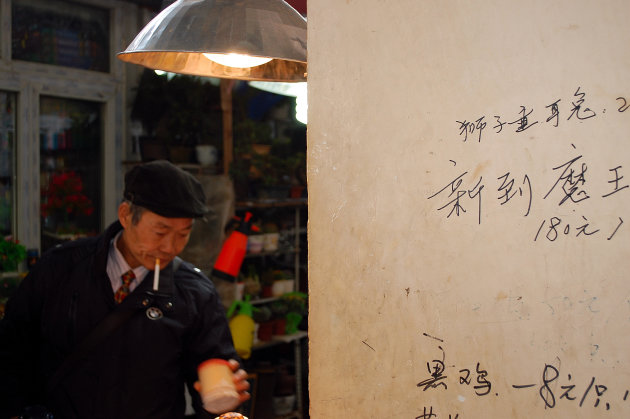 狮子垂耳兔. 2
新到魔王
180元
黑鸡. 一8元/只.